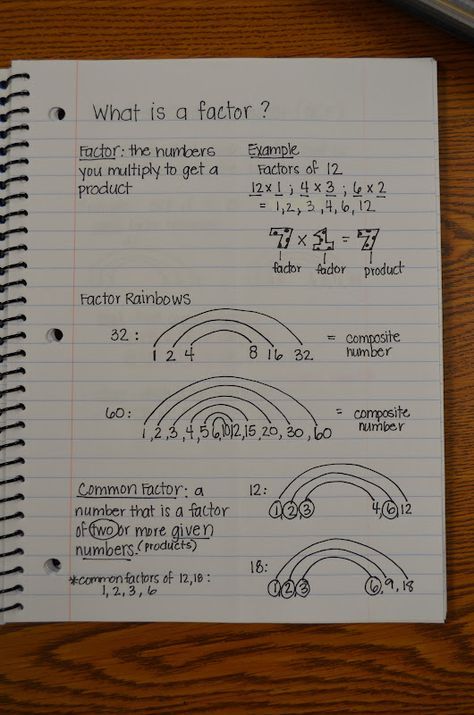 What is a factor?
Factor: the numbers
you multiply to get a
product
Example
Factors of 12
12 x 1 ; 4 x 3 ; 6 x 2
= 1, 2, 3, 4, 6, 12
7 x 1 = 7
factor factor product
Factor Rainbows
32: 1 2 4 8 16 32 = composite
number
60: 1, 2, 3, 4, 5 6, 10 12, 15, 20, 30, 60 = composite
number
Common Factor: a
number that is a factor
of two or more given
numbers. (products)
*common factors of 12, 18:
1, 2, 3, 6
12:
1, 2, 3 4, 6, 12
18:
1, 2, 3 6, 9, 18